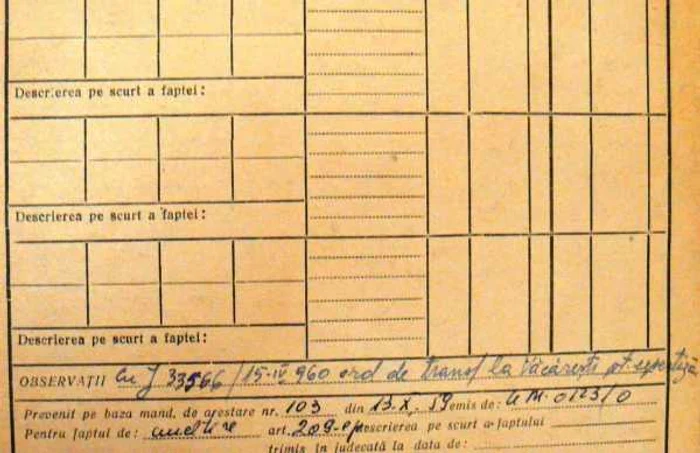 Descrierea pe scurt a faptei:
Descrierea pe scurt a faptei:
Descrierea pe scurt a faptei:
OBSERVAȚII Cu J 33566/15-IV 960 ord de transf la Văcărești pt. expertiză
Prevenit pe baza mand. de arestare nr. 103 din 13.X.59 emis de: U.M. 0123/O
Pentru faptul de: uneltire art. 209 Descrierea pe scurt a faptului
trimis în judecată la data de: